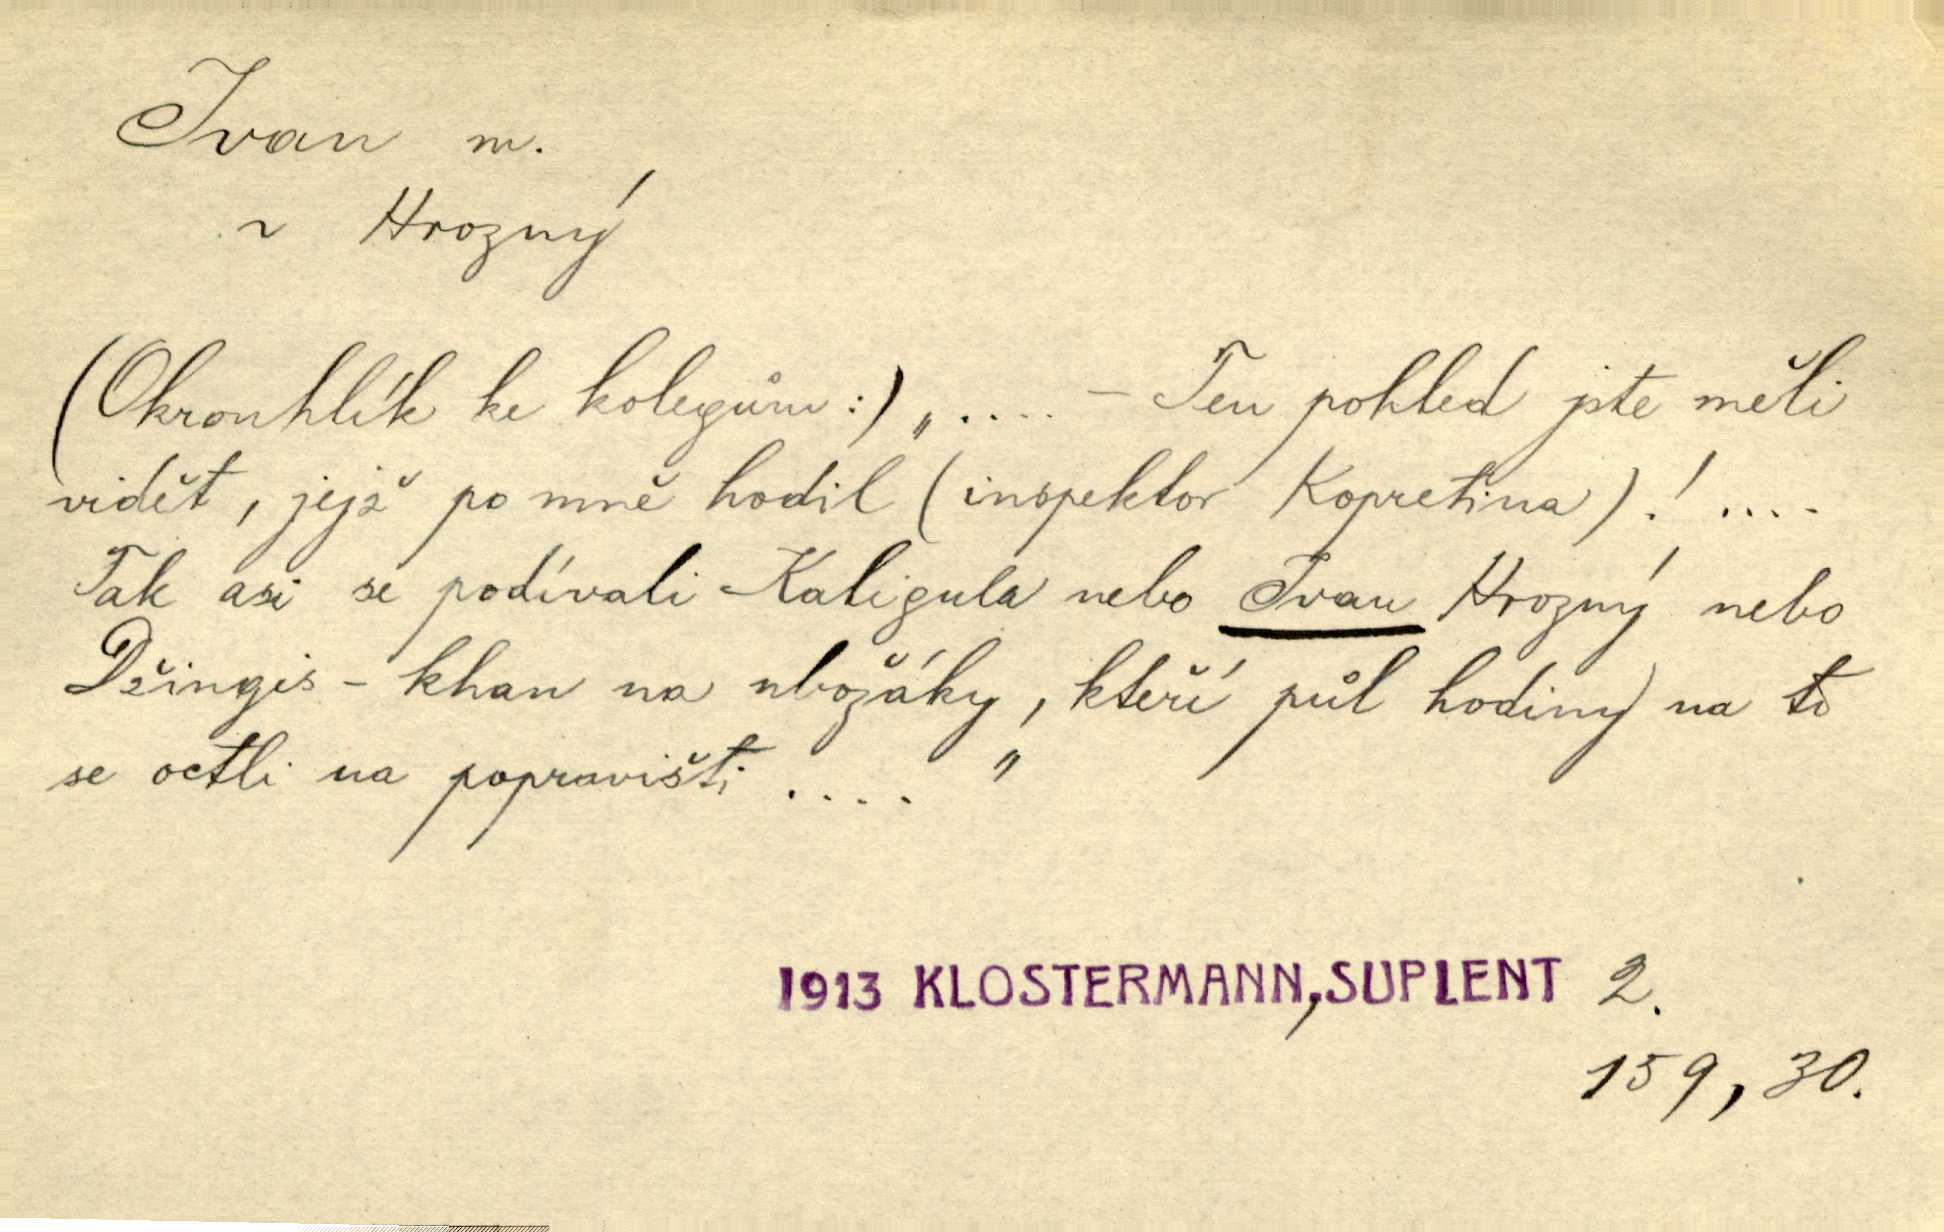 Ivan m.
~ Hrozný
(Okrouhlík ke kolegům:) „.... – Ten pohled jste měli
vidět, jejž po mně hodil (inspektor Kopretina).! ....
Tak asi se podívali Kaligula nebo Ivan Hrozný nebo
Džingis-khan na ubožáky, kteří půl hodiny na to
se octli na popravišti .... "
1913 KLOSTERMANN, SUPLENT 2.
159, 30.